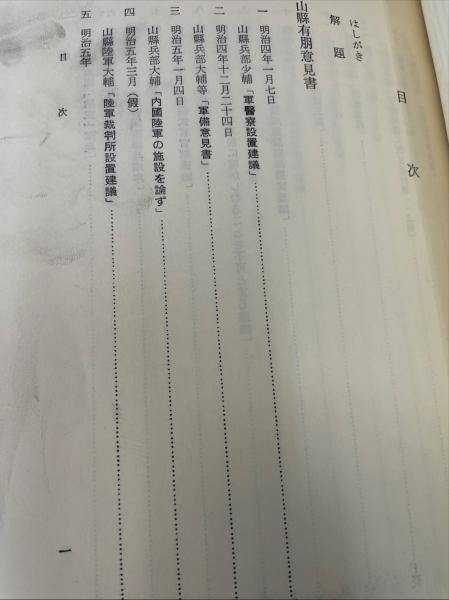 目次
はしがき
解題
山縣有朋意見書
一 明治四年一月七日
山縣兵部少輔「軍醫寮設置建議」
二 明治四年十二月二十四日
山縣兵部大輔等「軍備意見書」
三 明治五年一月四日
山縣兵部大輔「內國陸軍の施設を論ず」
四 明治五年三月（假）
山縣陸軍大輔「陸軍裁判所設置建議」
五 明治五年
目次
一